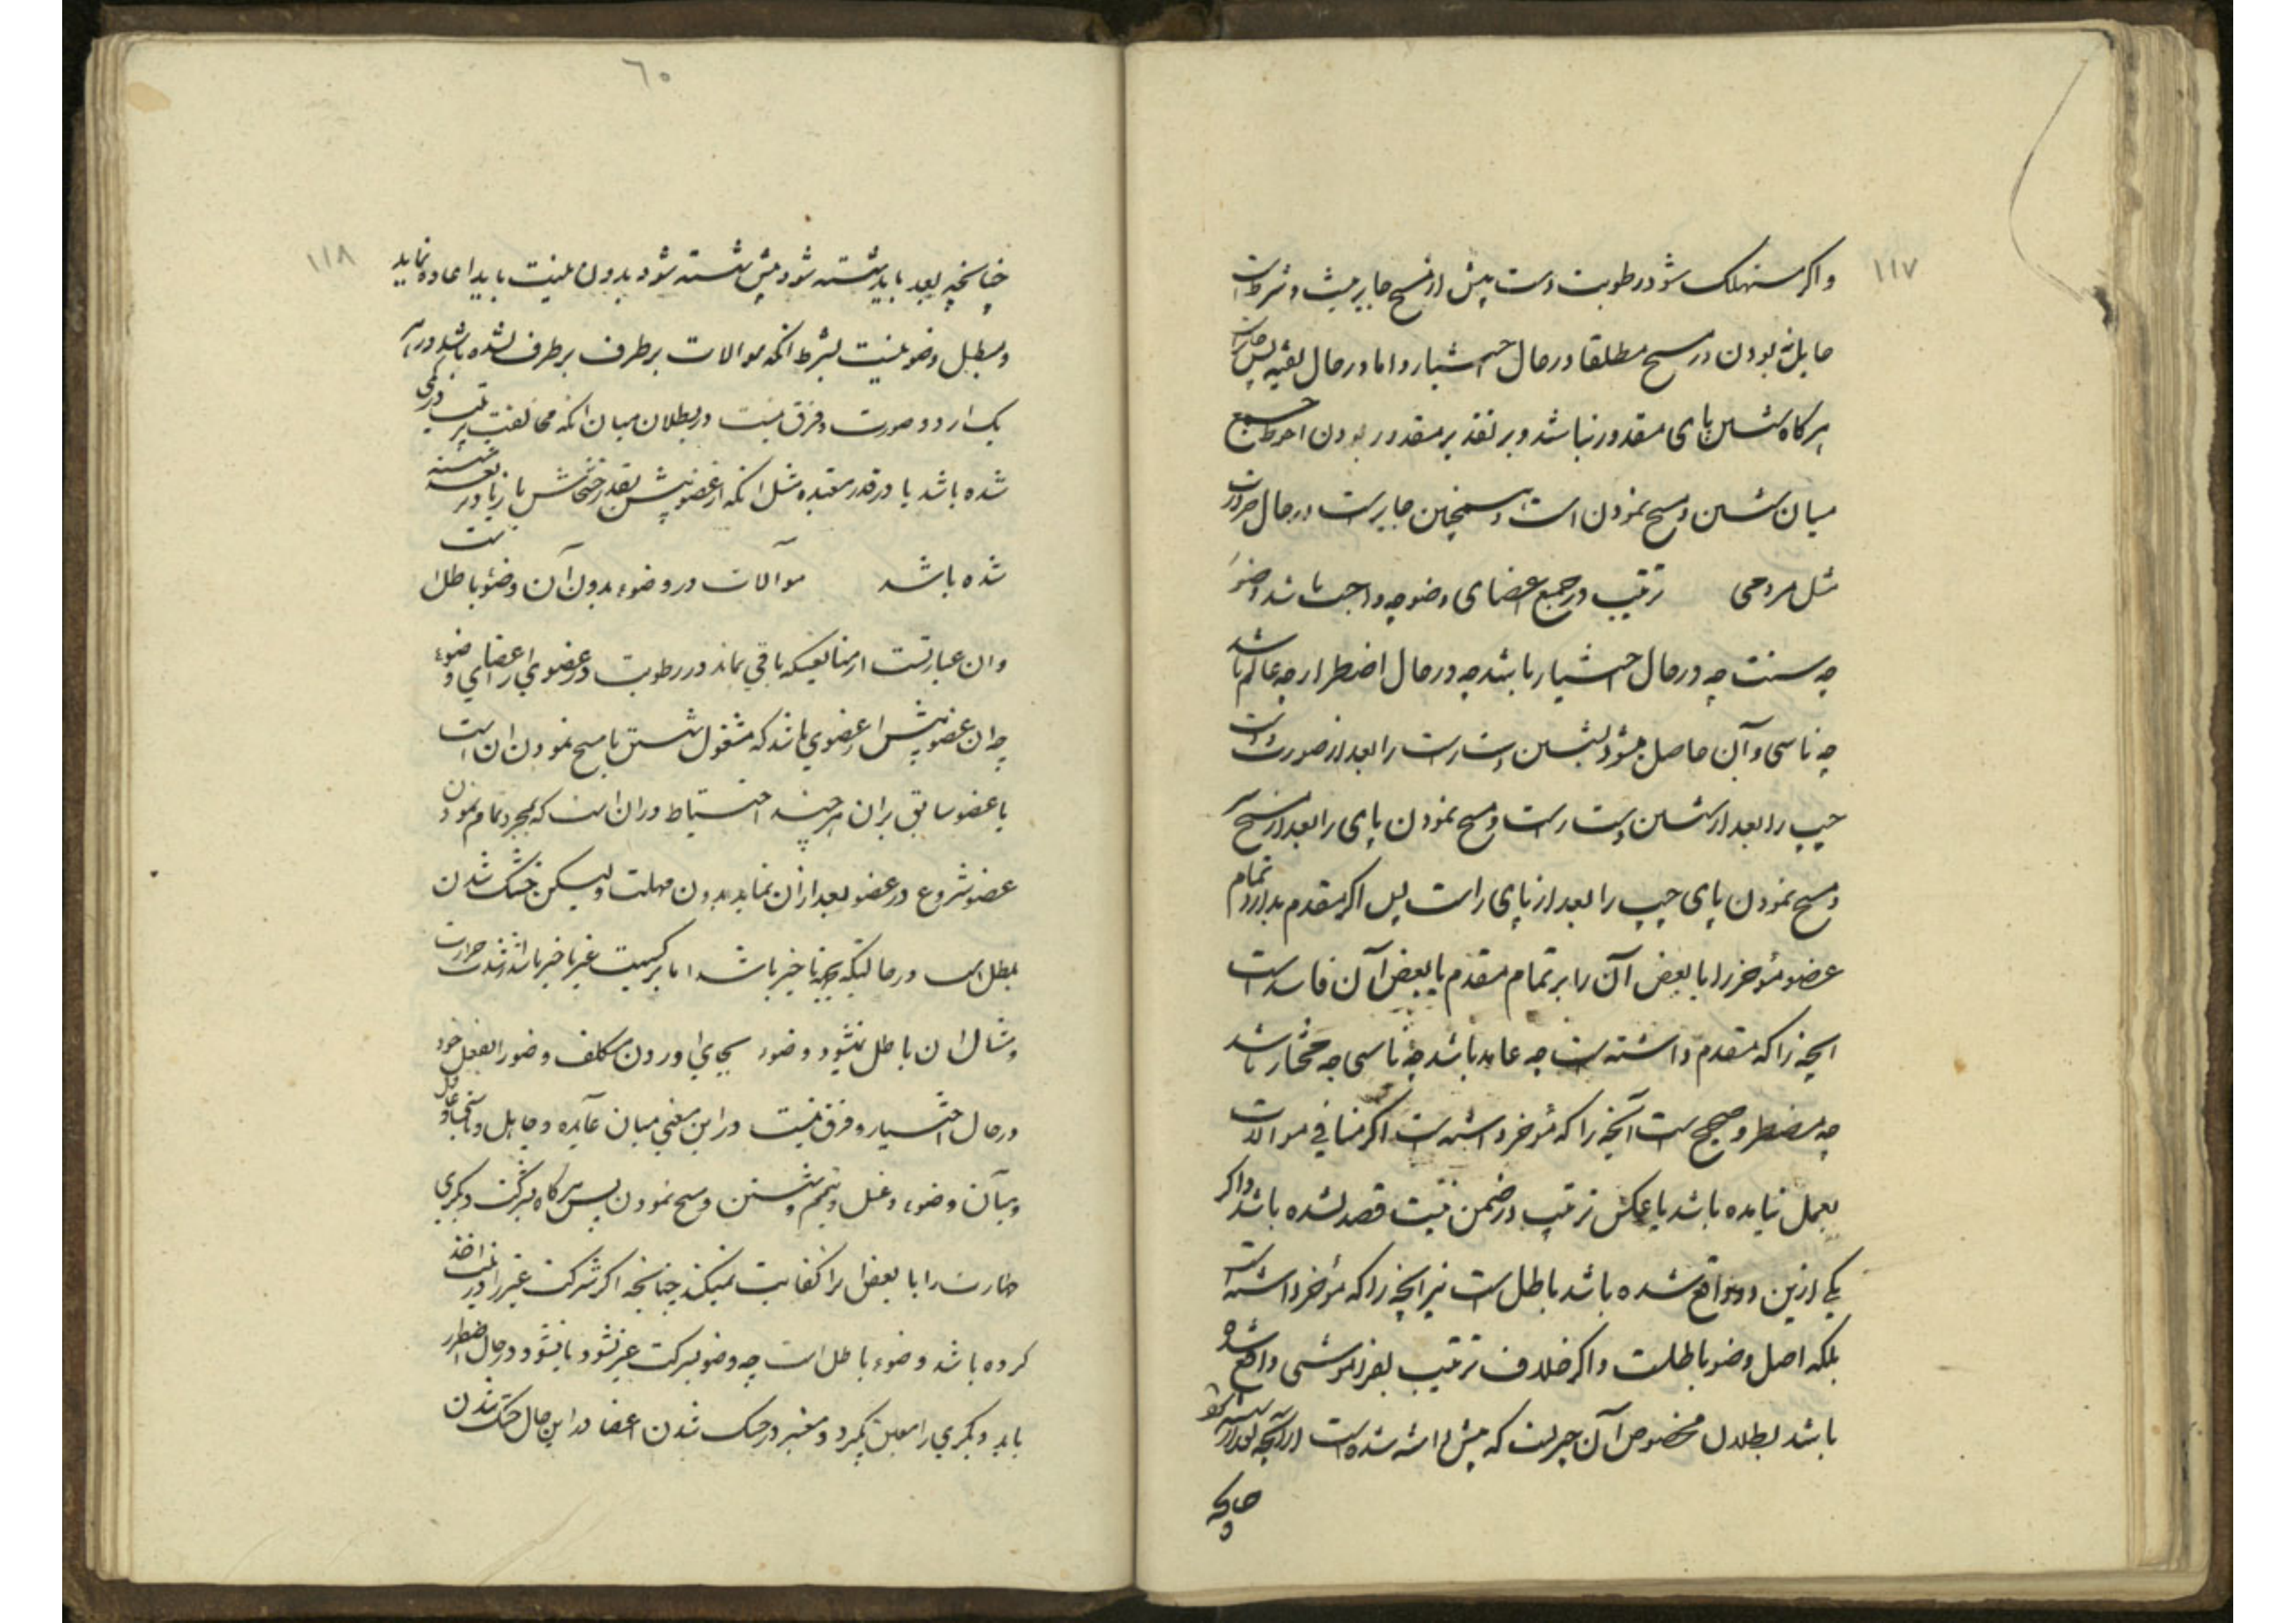 ١١٧
واکر مستهلک شود رطوبت دست پیش از مسح جایز نیست و شرطست
حایل نبودن در مسح مطلقا در حال اختیار و اما در حال تقیه پس جایز است
هرکاه شستن پای مقدور نباشد و بر تقدیر مقدور بودن احوط جمع
میان شستن و مسح نمودن است و همچنین جایز است در حال ضرورت
مثل سردی ترتیب در جمیع اعضای وضو چه واجب باشد وضوء
چه سنت چه در حال اختیار باشد چه در حال اضطرار چه عالم باشد
چه ناسی و آن حاصل میشود بشستن دست راست را بعد از صورت و دست
چپ را بعد از شستن دست راست و مسح نمودن پای را بعد از مسح سر
و مسح نمودن پای چپ را بعد از پای راست پس اکر مقدم بدارد تمام
عضو مؤخر را یا بعض آن را بر تمام مقدم یا بعض آن فاسد است
انچه را که مقدم داشته است چه عامد باشد چه ناسی چه مختار باشد
چه مضطر و صحیح است آنچه را که مؤخر داشته است اکر منافی موالات
بعمل نیامده باشد یا عکس ترتیب در ضمن نیت قصد نشده باشد و اکر
یکی ازین دو واقع شده باشد باطل است نیز انچه را که مؤخر داشته است
بلکه اصل وضو باطلست و اکر خلاف ترتیب بفراموشی واقع شده
باشد بطلان مخصوص آن چیزیست که پیش داشته شده است از آنچه بعد از
چنانچه
٦٠
١١٨
چنانچه بعد باید شسته شود پیش شسته شود بدون نیت باید اعاده نماید
و مبطل وضو نیست بشرط انکه موالات برطرف برطرف نشده باشد در هر
یک از دو صورت و فرق نیست در بطلان میان انکه مخالفت ترتیب در کمی
شده باشد یا در قدر معتد به مثل انکه از عضو پیش بقدر خشخاش یا زیادتر شسته
شده باشد موآلات در وضوء بدون آن وضو باطل است
وان عبارتست از متابعتیکه باقی بماند در رطوبت در عضوی از اعضای وضوء
چه ان عضو پیش از عضوی باشد که مشغول شستن یا مسح نمودن ان است
یا عضو سابق بران هر چند احتیاط دران است که بمجرد تمام نمودن
عضو شروع در عضو بعد ازان نماید بدون مهلت ولیکن خشک شدن
مبطل است در حالتیکه بجهة تاخیر باشد اما بر کسیت غیر تاخیر باشد از شدت حرارت
و مثال ان باطل نمیشود وضوء بجای اوردن مکلف وضو را بفعل خود
در حال اختیار و فرق نیست در این معنی میان عامد و جاهل و ناسی و غافل
و میان وضوء و غسل و تیمم و شستن و مسح نمودن پس هرکاه بشرکت دیکری
طهارت را یا بعض از را کفایت نمیکند چنانچه اکر شرکت غیر را در نیت اخذ
کرده باشد وضوء باطل است چه وضو بشرکت غیر شود یا نشود و در حال اضطرار
باید دیکری را معین بکیرد و معتبر در خشک شدن اعضا در این حال خشک شدن